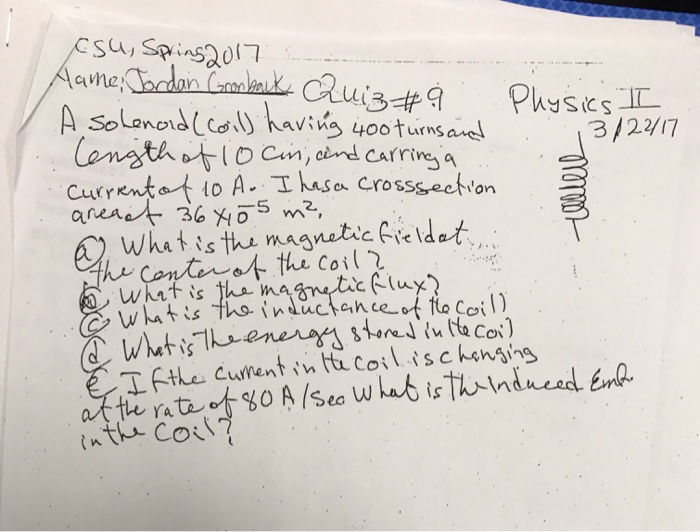 CSU, Spring 2017
Name: Jordan Quiz #9 Physics II
3/22/17
A solenoid (coil) having 400 turns and
length of 10 cm, and carring a
current of 10 A. I has a crosssection
area of 36 x 10^-5 m^2.
(a) What is the magnetic field at
the center of the coil?
(b) What is the magnetic flux?
(c) What is the inductance of the coil)
(d) What is The energy stored in the coil
(e) If the current in the coil is changing
at the rate of 80 A/sec What is the induced Emf
in the coil?